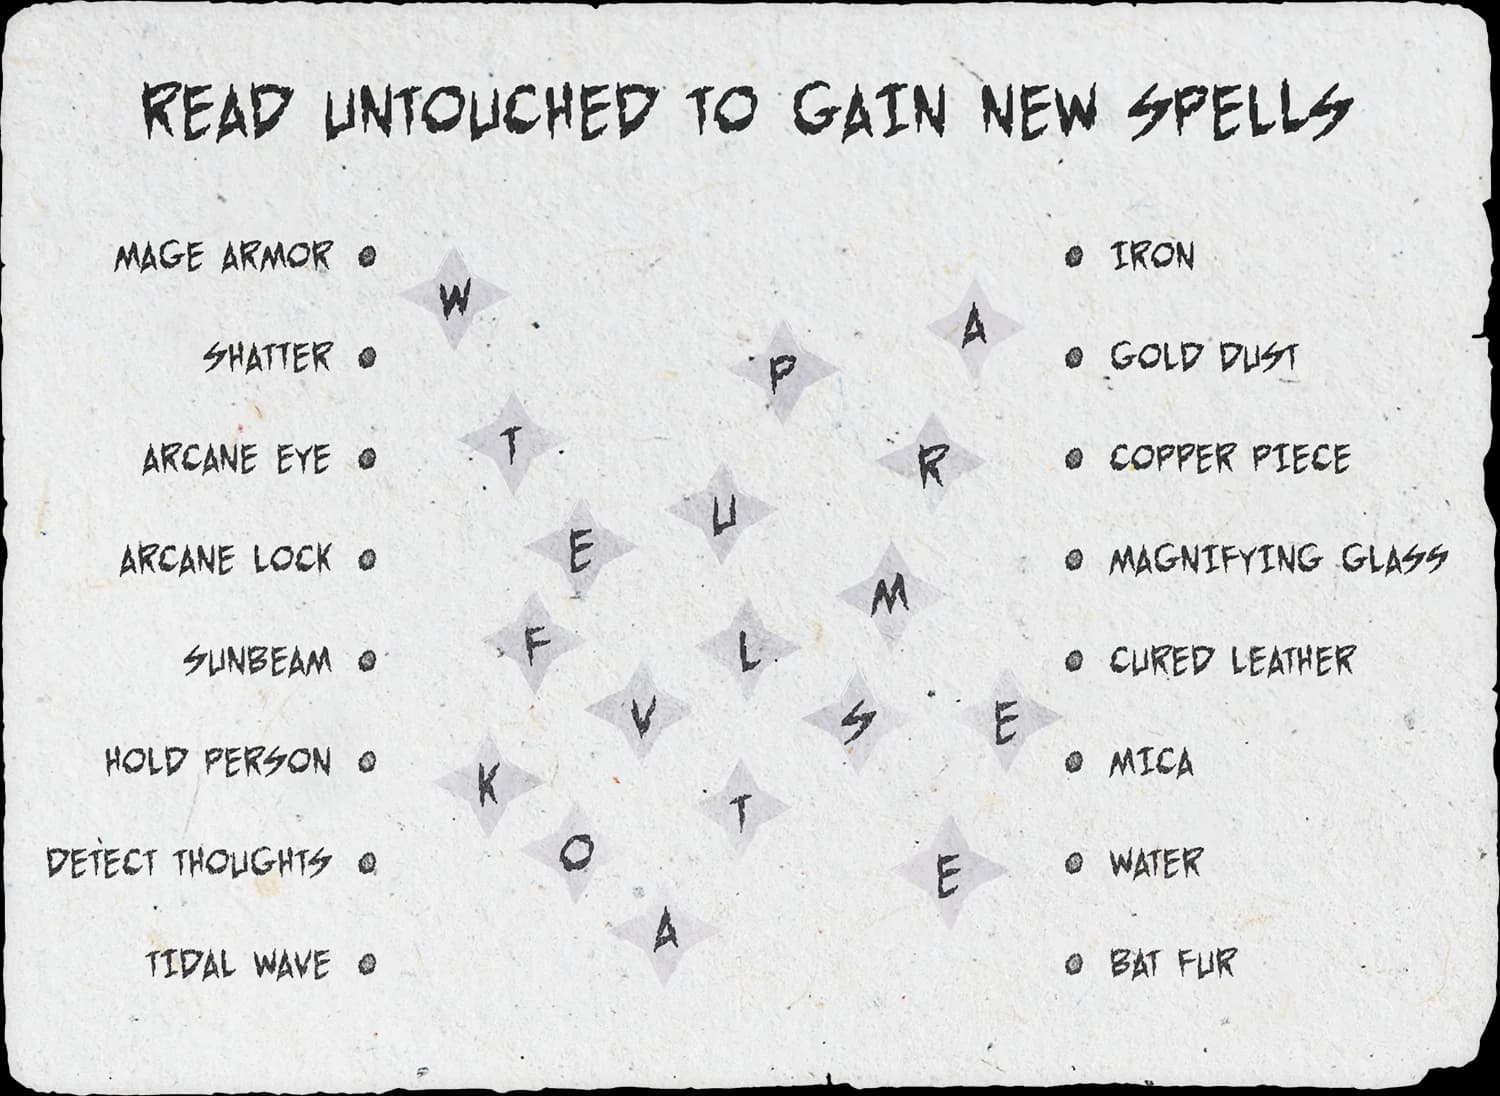 READ UNTOUCHED TO GAIN NEW SPELLS
MAGE ARMOR
IRON
W
A
SHATTER
GOLD DUST
P
T
ARCANE EYE
R
COPPER PIECE
U
E
ARCANE LOCK
MAGNIFYING GLASS
M
F
L
SUNBEAM
CURED LEATHER
V
S
E
HOLD PERSON
MICA
K
T
O
DETECT THOUGHTS
WATER
E
A
TIDAL WAVE
BAT FUR